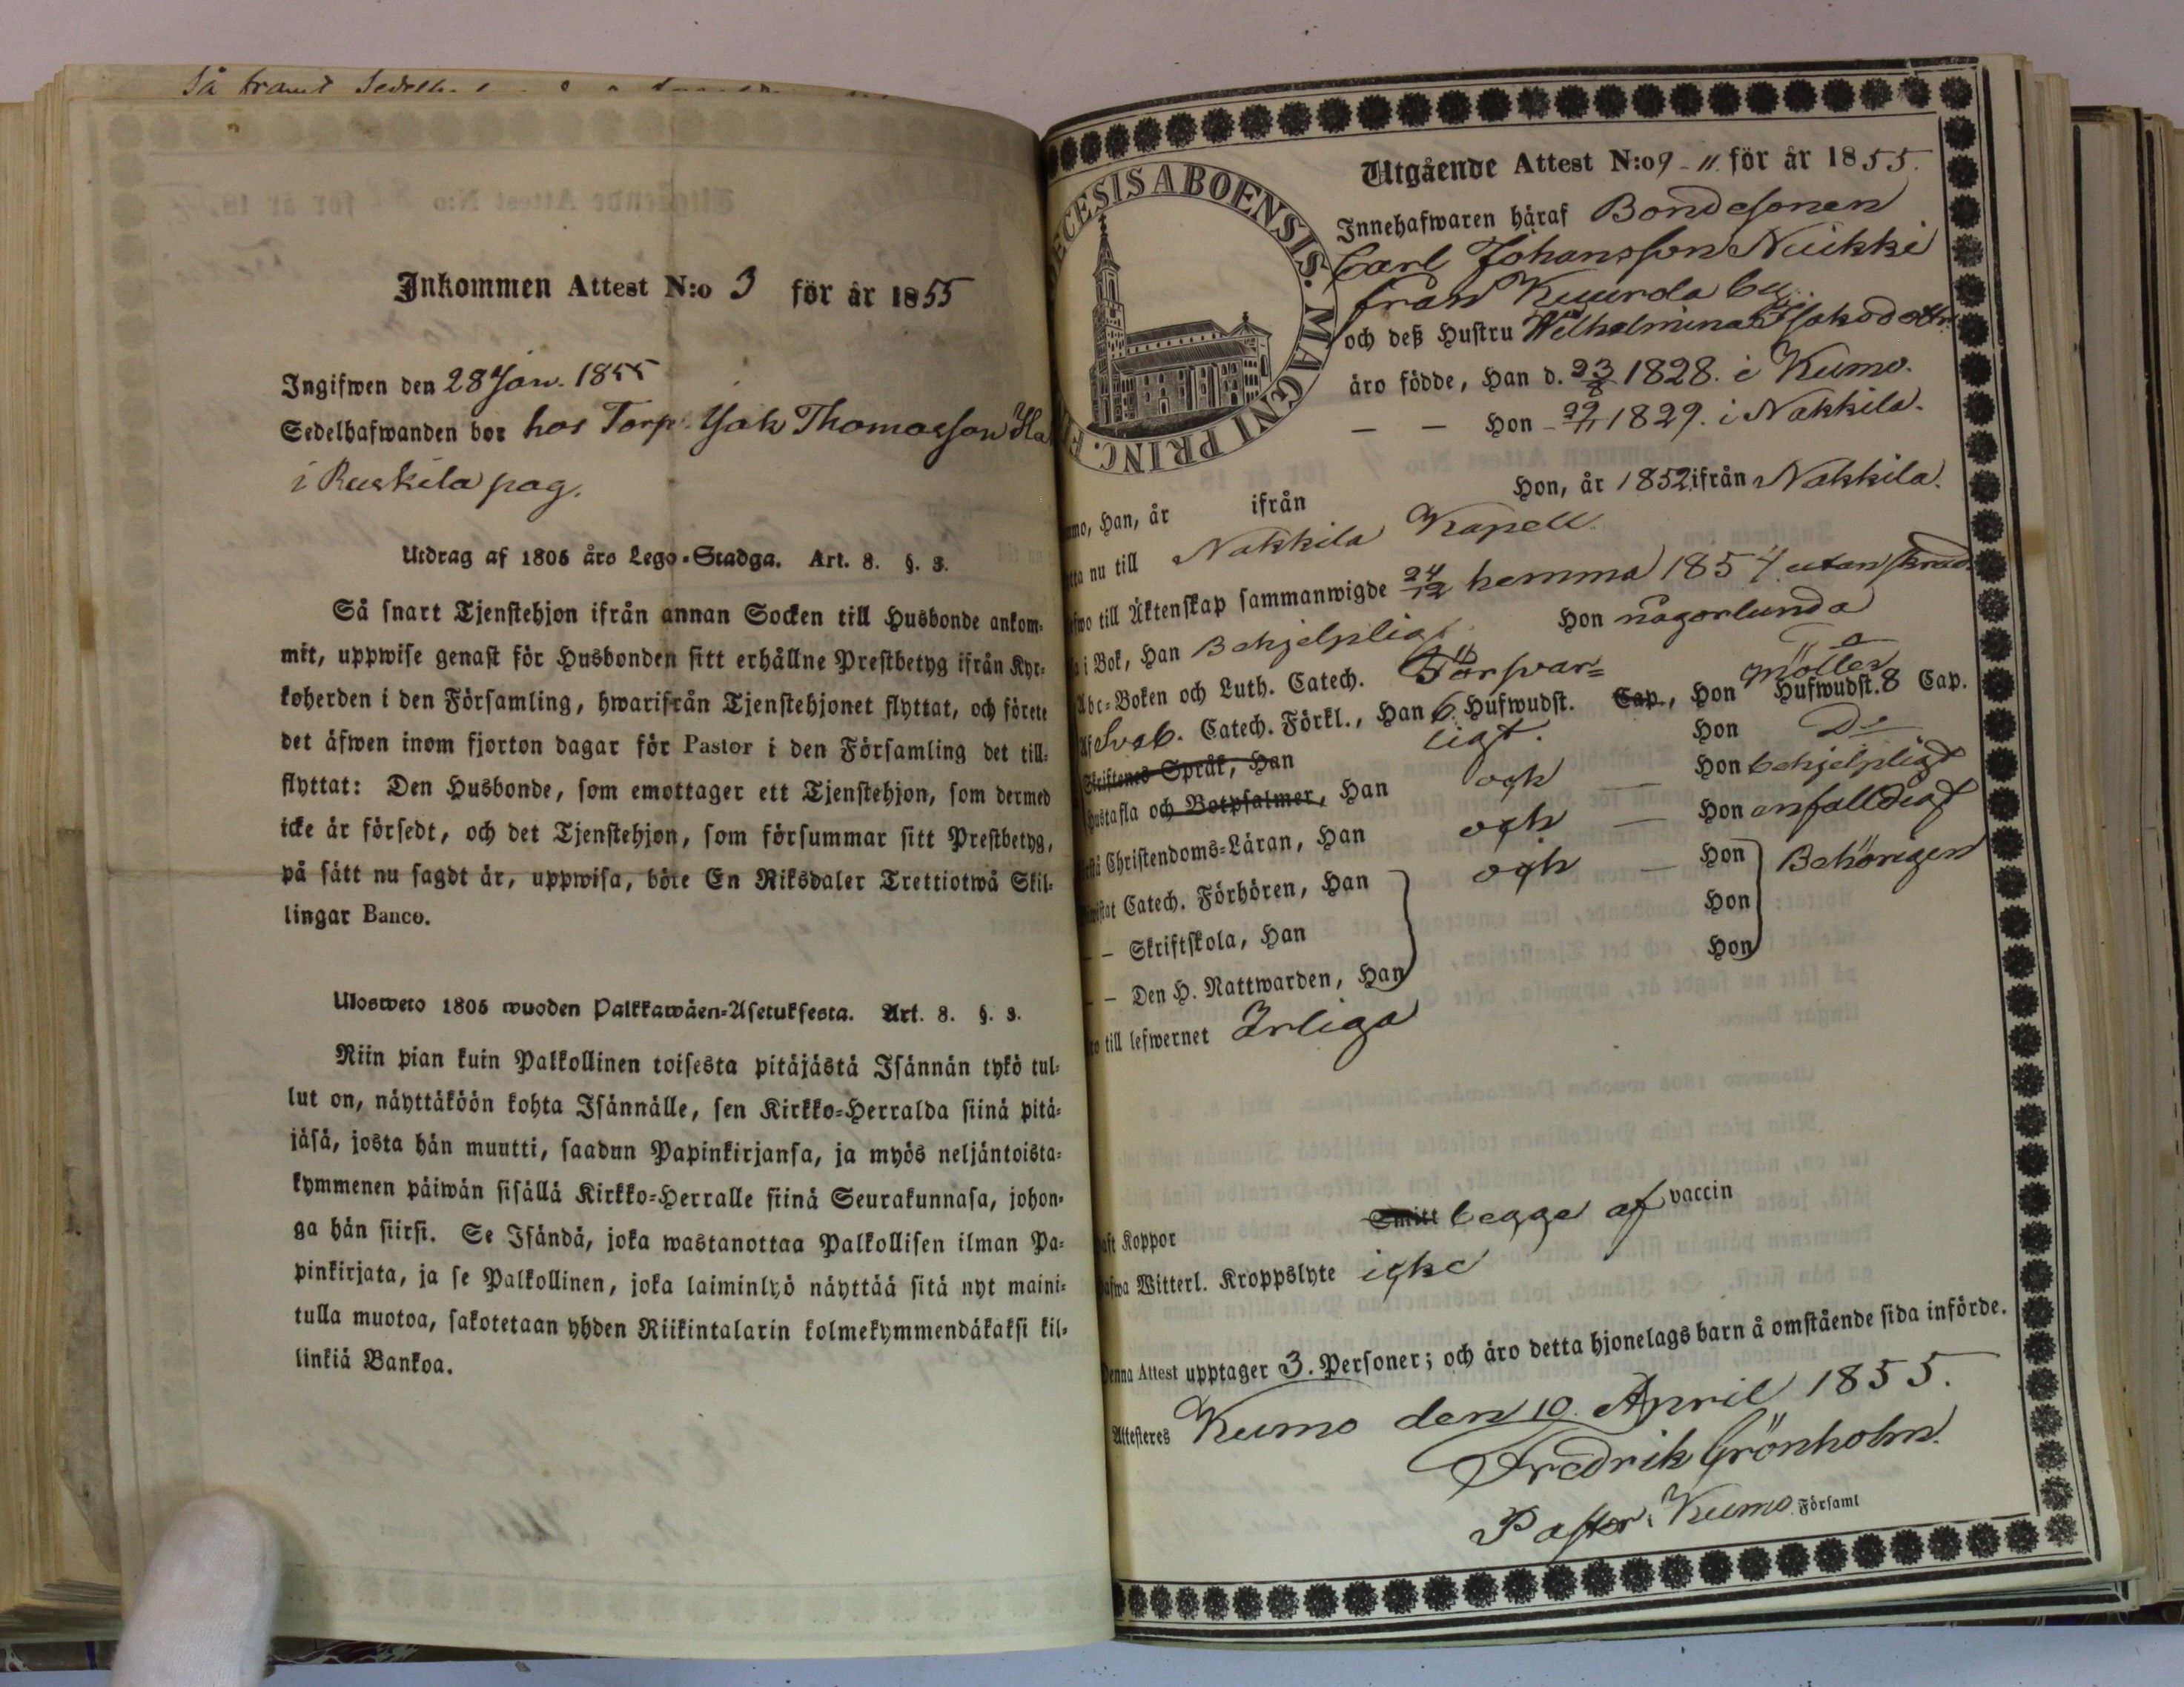 Så framt
Inkommen Attest N:o 3 för år 1855
Ingifwen den 28 Jan. 1855
Sedelhafwanden bor hos Torp. Isak Thomasson
i Ruskila pag.
Utdrag af 1805 års Lego-Stadga. Art. 8. §. 3.
Så snart Tjenstehjon ifrån annan Socken till Husbonde ankom-
mit, uppwise genast för Husbonden sitt erhållne Prestbetyg ifrån Kyr-
koherden i den Församling, hwarifrån Tjenstehjonet flyttat, och förete
det äfwen inom fjorton dagar för Pastor i den Församling det till-
flyttat: Den Husbonde, som emottager ett Tjenstehjon, som dermed
icke är försedt, och det Tjenstehjon, som försummar sitt Prestbetyg,
på sätt nu sagdt är, uppwisa, böte En Riksdaler Trettiotwå Skil-
lingar Banco.
Ulosweto 1805 wuoden Palkkawäen-Asetuksesta. Art. 8. §. 3.
Niin pian kuin Palkollinen toisesta pitäjästä Isännän tykö tul-
lut on, näyttäköön kohta Isännälle, sen Kirkko-Herralda siinä pitä-
jäsä, josta hän muutti, saadun Papinkirjansa, ja myös neljäntoista-
kymmenen päiwän sisällä Kirkko-Herralle siinä Seurakunnasa, johon-
ga hän siirsi. Se Isändä, joka wastanottaa Palkollisen ilman Pa-
pinkirjata, ja se Palkollinen, joka laiminlyö näyttää sitä nyt maini-
tulla muotoa, sakotetaan yhden Riikintalarin kolmekymmendäkaksi kil-
linkiä Bankoa.
ECESIS ABOENSIS. MAGNI PRINC. F
Utgående Attest N:o 9-11. för år 1855.
Innehafwaren häraf Bondesonen
Carl Johansson Nuikki
från Kuurola by.
och deß Hustru Wilhelmina Isaksdotter
äro födde, Han d. 23/8 1828. i Kumo.
— — Hon - 29/11 1829. i Nakkila.
umo, Han, år ifrån Hon, år 1852 ifrån Nakkila.
tta nu till Nakkila Kapell
fwo till Äktenskap sammanwigde 24/12 hemma 1854 utan
i Bok, Han Behjelpligt Hon någorlunda
Abc-Boken och Luth. Catech. Försvar- D:o
Af Sveb. Catech. Förkl., Han 6 Hufwudst. Cap., Hon Möller Hufwudst. 8 Cap.
Skriftenes Språk, Han ligt. Hon D:o
Hustafla och Botpsalmer, Han och — Hon behjelpligt
Christendoms-Läran, Han och — Hon enfalldigt
istat Catech. Förhören, Han och — Hon Behörigen
— — Skriftskola, Han Hon
— — Den H. Nattwarden, Han Hon
ro till lefwernet Ärliga
aft Koppor Smitt begge af vaccin
afwa Witterl. Kroppslyte icke
Denna Attest upptager 3. Personer; och äro detta hjonelags barn å omstående sida införde.
Attesteres Kumo den 10. April 1855.
Fredrik Grönholm.
Pastor i Kumo Församl